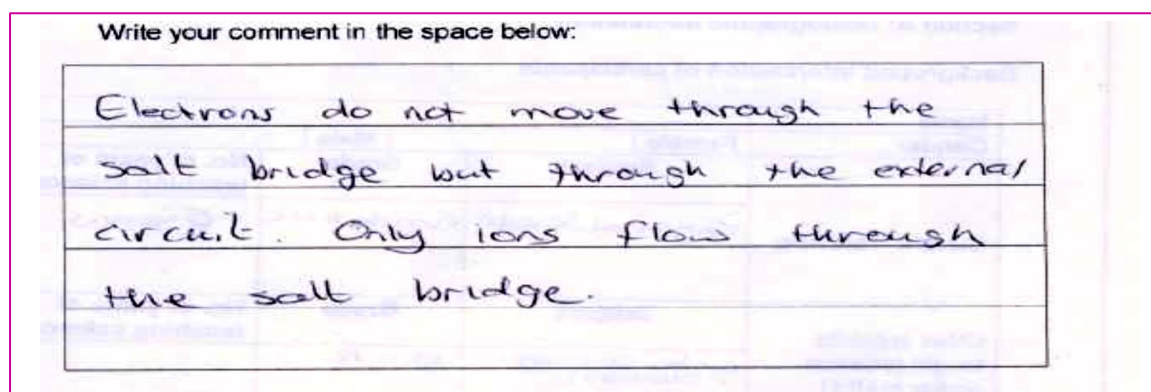 Write your comment in the space below:
Electrons do not move through the
salt bridge but through the external
circuit. Only ions flow through
the salt bridge.